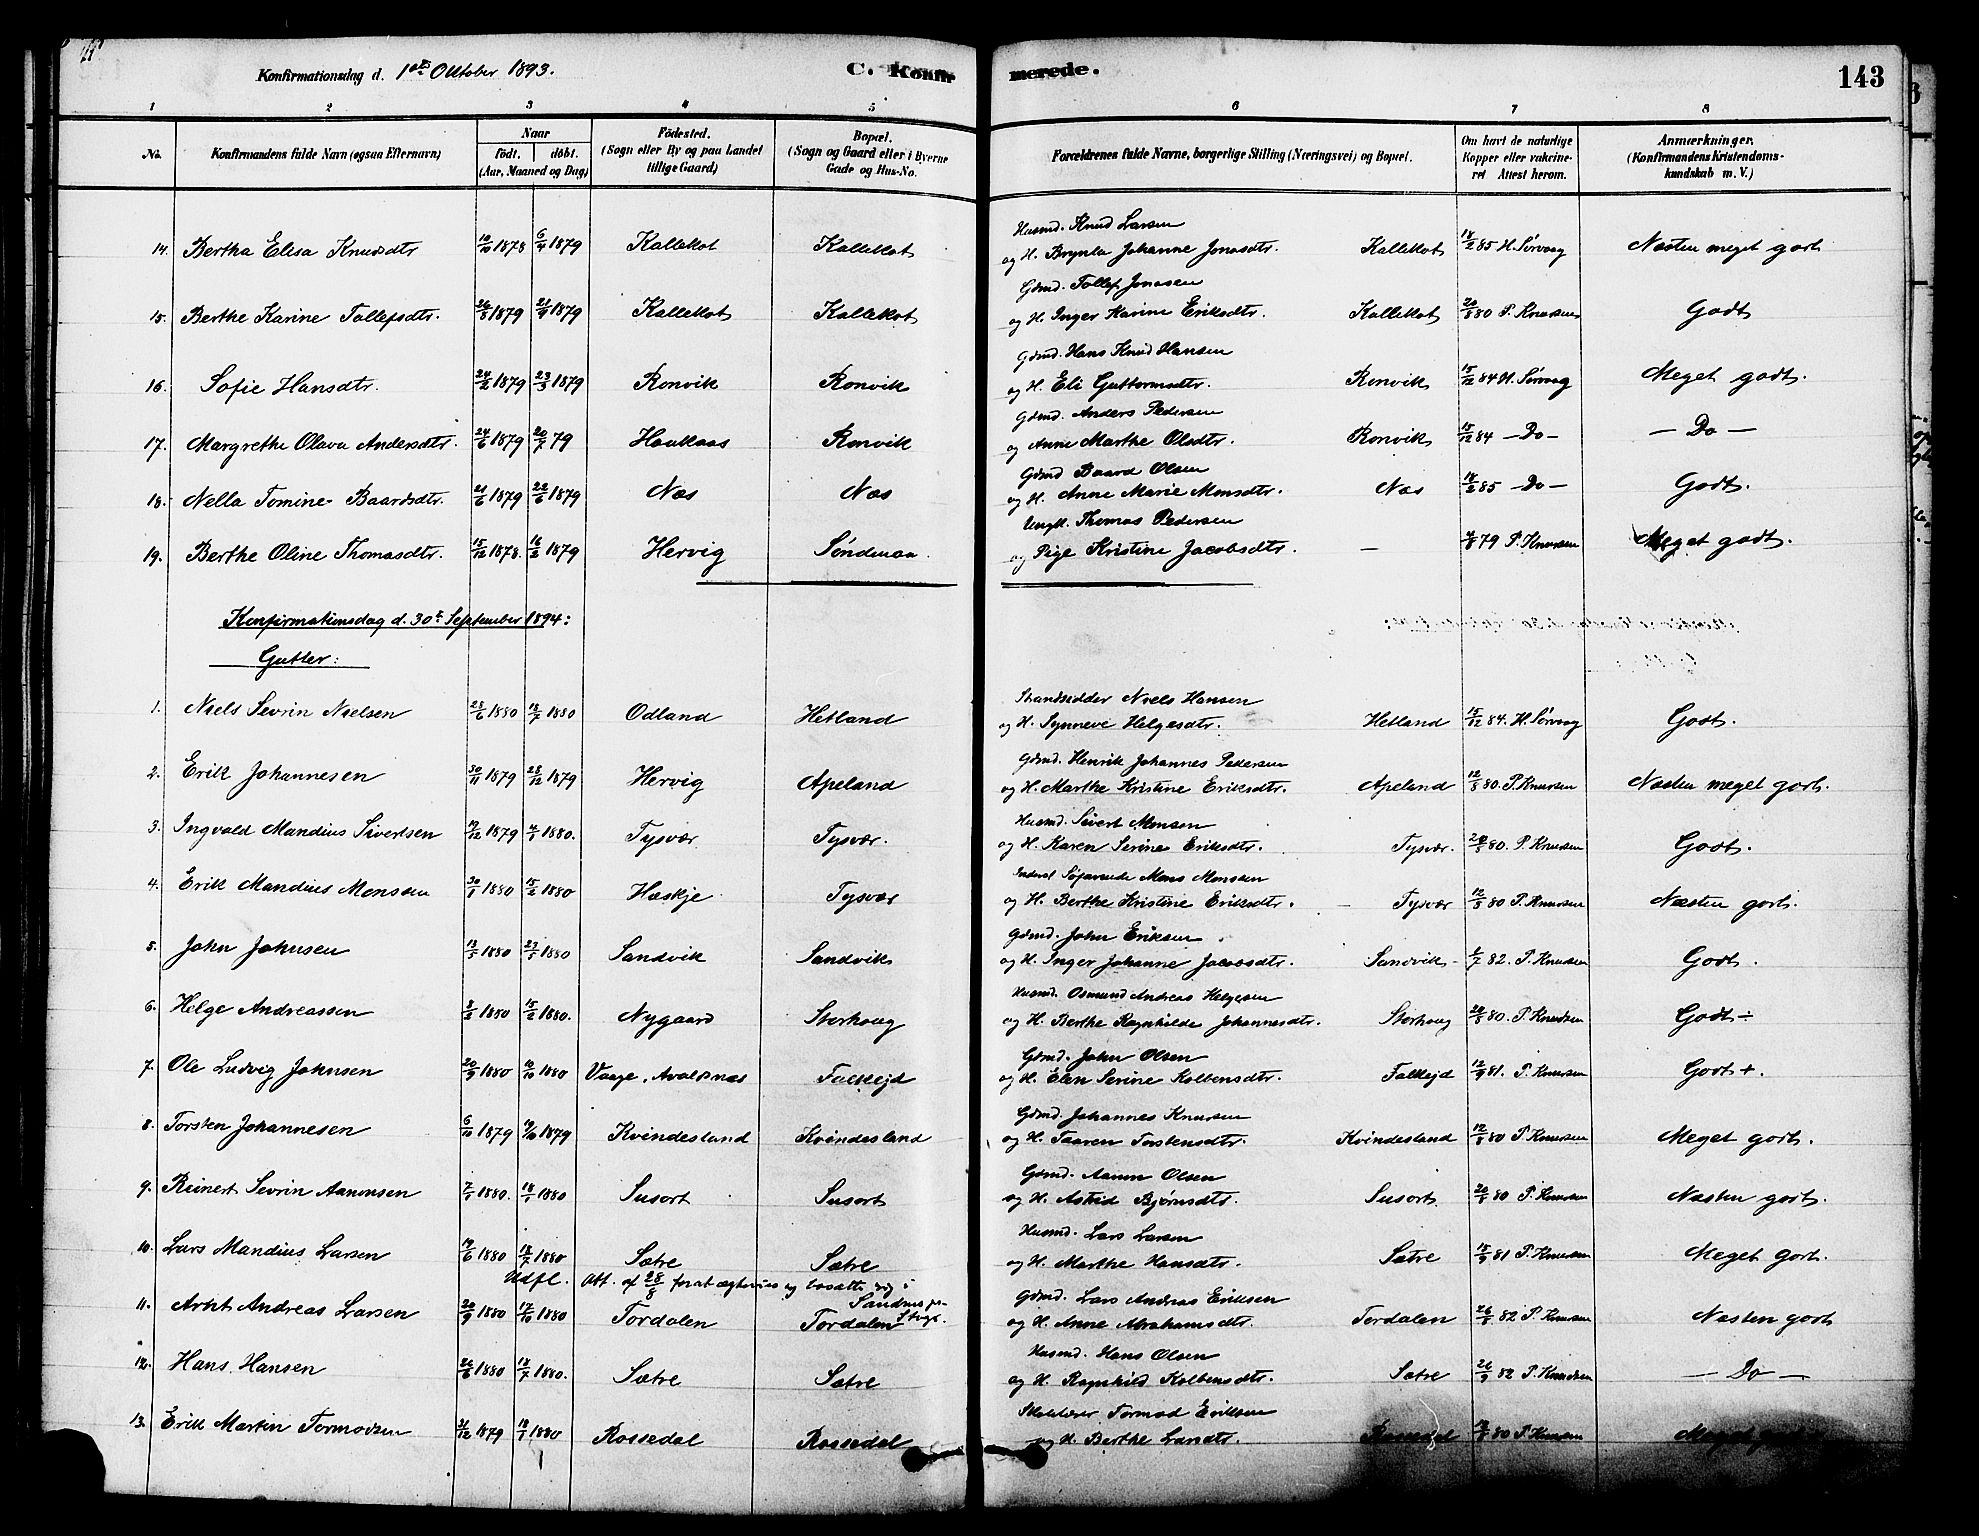 Konfirmationsdag d. 1ste Oktober 1893. C. Konfirmerede. 143
1 2 3 4 5 6 7 8
No. Konfirmandens fulde Navn (ogsaa Efternavn) Naar födt. döbt. (Aar, Maaned og Dag) Födested. (Sogn eller By og paa Landet tillige Gaard) Bopæl. (Sogn og Gaard eller i Byerne Gade og Hus-No. Forældrenes fulde Navne, borgerlige Stilling (Næringsvei) og Bopæl. Om havt de naturlige Kopper eller vakcineret Attest herom. Anmærkninger. (Konfirmandens Kristendomskundskab m. V.)
Husmd. Knud Larsen
14. Bertha Elisa Knudsdtr 10/10 1878 6/4 1879 Kallekot Kallekot og H. Brynla Johanne Jonasdtr. Kallekot 18/2 85 H. Sørvaag Næsten meget godt
Gdmd. Tollef Jonasen
15. Berthe Karine Tollefsdtr. 26/8 1879 21/9 1879 Kallekot Kallekot og H. Inger Karine Eriksdtr. Kallekot 20/8 80 P. Knudsen Godt
Gdmd. Hans Knud Hansen
16. Sofie Hansdtr. 24/2 1879 23/3 1879 Ronvik Ronvik og H. Eli Guttormsdtr. Ronvik 15/12 84 H. Sørvaag Meget godt.
Gdmd. Anders Pedersen
17. Margrethe Olava Andersdtr. 24/6 1879 20/7 79 Haukaas Ronvik og Anne Marthe Olsdtr. Ronvik 15/12 84 - Do - - Do -
Gdmd Baard Olsen
18. Nella Tomine Baardsdtr. 21/6 1879 22/6 1879 Næs Næs og H. Anne Marie Monsdtr. Næs 18/2 85 - Do - Godt.
Ungk. Thomas Pedersen
19. Berthe Oline Thomasdtr. 15/12 1878 16/2 1879 Hervig Søndenaa. og Pige Kristine Jacobsdtr. - 4/8 79 P. Knudsen Meget godt.
Konfirmationsdag d. 30te September 1894:
Gutter:
Strandsidder Niels Hansen
1. Niels Sevrin Nielsen 23/6 1880 18/7 1880 Odland Hetland og H. Synneve Helgesdtr. Hetland 15/12 84. H. Sørvaag Godt.
Gdmd. Henrik Johannes Pedersen
2. Erik Johannesen 30/11 1879 28/12 1879 Hervig Apeland og H. Marthe Kristine Eriksdtr. Apeland 12/8 80. P. Knudsen Næsten meget godt.
Husmd. Sivert Monsen
3. Ingvald Mandius Sivertsen 19/12 1879 4/1 1880. Tysvær Tysvær. og H. Karen Serine Eriksdtr. Tysvær. 20/8 80. P. Knudsen Godt.
Inderst Søfarende Mons Monsen
4. Erik Mandius Monsen 30/1 1880 15/2 1880 Hæskje Tysvær og H. Berthe Kristine Eriksdtr. - Tysvær 12/8 80 P. Knudsen Næsten godt.
Gdmd. John Eriksen
5. John Johnsen 13/5 1880 23/5 1880 Sandvik Sandvik og H. Inger Johanne Jacobsdtr. Sandvik 1/7 82. P. Knudsen Godt.
Husmd. Osmund Andreas Helgesen
6. Helge Andreassen 3/2 1880 15/2 1880. Nygaard Storhoug og H. Berthe Ragnhilde Johannesdtr. Storhoug 20/8 80. P. Knudsen Godt ÷
Gdmd. John Olsen
7. Ole Ludvig Johnsen 20/9 1880 10/10 1880 Vaage, Avaldsnæs Falkejd og H. Elen Serine Kolbensdtr. Falkejd 12/9 81. P. Knudsen Godt +.
Gdmd. Johannes Knudsen
8. Torsten Johannesen 6/10 1879 19/10 1879 Kvindesland Kvindesland og H. Taaren Torstensdtr. Kvindesland 12/8 80 P. Knudsen Meget godt.
Gdmd. Aamun Olsen
9. Reinert Sevrin Aamunsen 7/1 1880. 18/1 1880 Susort Susort og H. Astrid Bjørnsdtr. Susort. 20/8 80 P. Knudsen Næsten godt.
Husmd. Lars Larsen
10. Lars Mandius Larsen 19/6 1880 18/7 1880 Sætre Sætre og H. Marthe Hansdtr. Sætre 15/9 81 P. Knudsen Meget godt.
Udfl. Att. af 28/8 for at ægtevies og bosatte sig i Sandnes
Gdmd. Lars Andreas Eriksen
11. Arnt Andreas Larsen 20/9 1880 17/10 1880 Tordalen Tordalen og H. Anne Abrahamsdtr. Tordalen 26/8 82 P. Knudsen Næsten godt
Husmd. Hans Olsen
12. Hans Hansen 26/6 1880 18/7 1880. Sætre Sætre og H. Ragnhild Kolbensdtr. Sætre 26/9 82 P. Knudsen - Do -
Skolelærer Tormod Eriksen
13. Erik Martin Tormodsen 31/12 1879 18/1 1880 Rossedal Rossedal og H. Berthe Larsdtr. Rossedal 80 P. Knudsen Meget godt